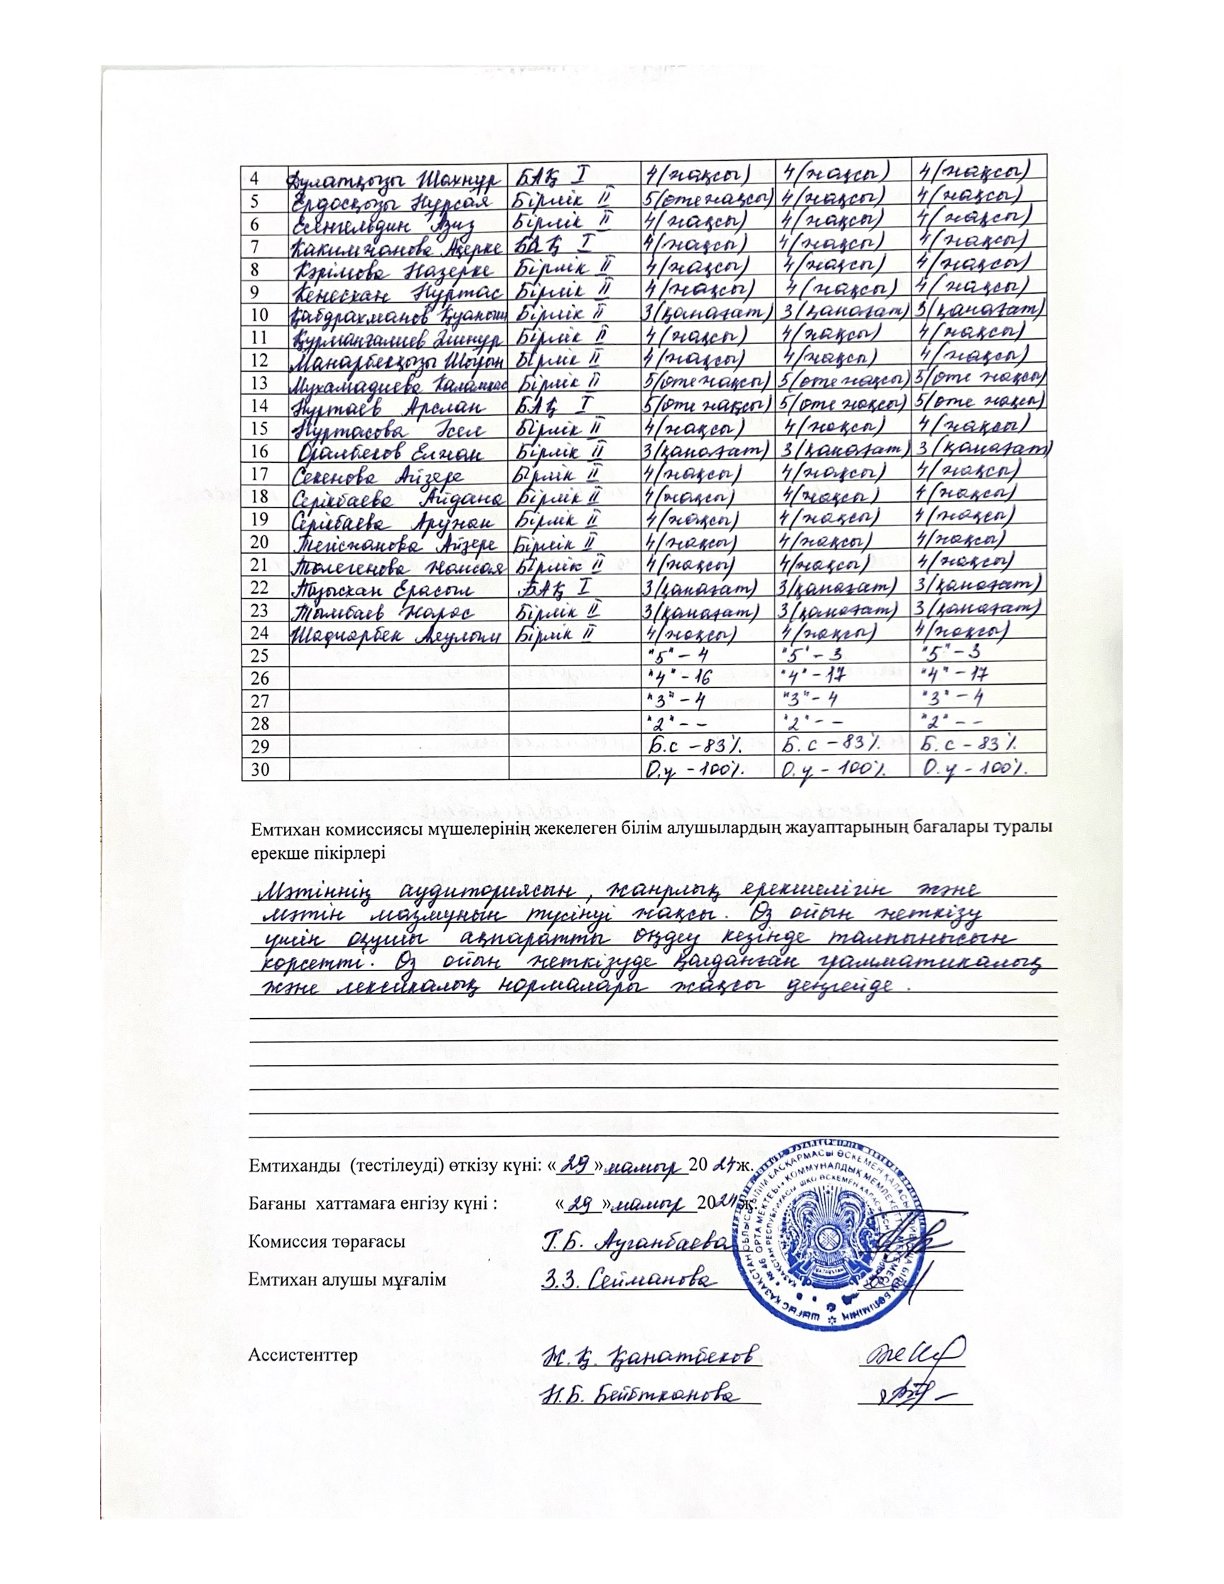 4 Дулатқызы Шахнур БАҚ I 4(жақсы) 4(жақсы) 4(жақсы)
5 Ердосқызы Нурсая Бірлік II 5(өте жақсы) 4(жақсы) 4(жақсы)
6 Есенгельдин Азиз Бірлік II 4(жақсы) 4(жақсы) 4(жақсы)
7 Какимжанова Ақерке БАҚ I 4(жақсы) 4(жақсы) 4(жақсы)
8 Кәрімова Назерке Бірлік II 4(жақсы) 4(жақсы) 4(жақсы)
9 Кеңесхан Нұртас Бірлік II 4(жақсы) 4(жақсы) 4(жақсы)
10 Қабдрахманов Қуаныш Бірлік II 3(қанағат) 3(қанағат) 3(қанағат)
11 Құрманғалиев Бірлік II 4(жақсы) 4(жақсы) 4(жақсы)
12 Манарбекқызы Шұғын Бірлік II 4(жақсы) 4(жақсы) 4(жақсы)
13 Мухамадиева Каламкас Бірлік II 5(өте жақсы) 5(өте жақсы) 5(өте жақсы)
14 Нуртаев Арслан БАҚ I 5(өте жақсы) 5(өте жақсы) 5(өте жақсы)
15 Нуртасова Әсел Бірлік II 4(жақсы) 4(жақсы) 4(жақсы)
16 Оралбеков Елжан Бірлік II 3(қанағат) 3(қанағат) 3(қанағат)
17 Секенова Айзере Бірлік II 4(жақсы) 4(жақсы) 4(жақсы)
18 Серікбаева Айдана Бірлік II 4(жақсы) 4(жақсы) 4(жақсы)
19 Серікбаева Аружан Бірлік II 4(жақсы) 4(жақсы) 4(жақсы)
20 Тегісжанова Айзере Бірлік II 4(жақсы) 4(жақсы) 4(жақсы)
21 Төлегенова Жансая Бірлік II 4(жақсы) 4(жақсы) 4(жақсы)
22 Ерасыл БАҚ I 3(қанағат) 3(қанағат) 3(қанағат)
23 Тымбаев Жарас Бірлік II 3(қанағат) 3(қанағат) 3(қанағат)
24 Шадиярбек Аяулым Бірлік II 4(жақсы) 4(жақсы) 4(жақсы)
25 "5" – 4 "5" – 3 "5" – 3
26 "4" – 16 "4" – 17 "4" – 17
27 "3" – 4 "3" – 4 "3" – 4
28 "2" – – "2" – – "2" – –
29 Б.с – 83% Б.с – 83% Б.с – 83%
30 О.у – 100% О.у – 100% О.у – 100%
Емтихан комиссиясы мүшелерінің жекелеген білім алушылардың жауаптарының бағалары туралы
ерекше пікірлері
Мәтіннің аудиториясын, жанрлық ерекшелігін және
мәтін мазмұнын түсінуі жақсы. Өз ойын жеткізу
үшін оқушы ақпаратты өңдеу кезінде талпынысын
көрсетті. Өз ойын жеткізуде қолданған грамматикалық
және лексикалық нормалары жақсы деңгейде.
Емтиханды (тестілеуді) өткізу күні: «29» мамыр 2024ж.
Бағаны хаттамаға енгізу күні : «29» мамыр 2024ж.
Комиссия төрағасы Г.Б. Ауганбаева
Емтихан алушы мұғалім З.З. Сейманова
Ассистенттер Ж.Қ. Қанатбеков
Н.Б. Бейбітханова